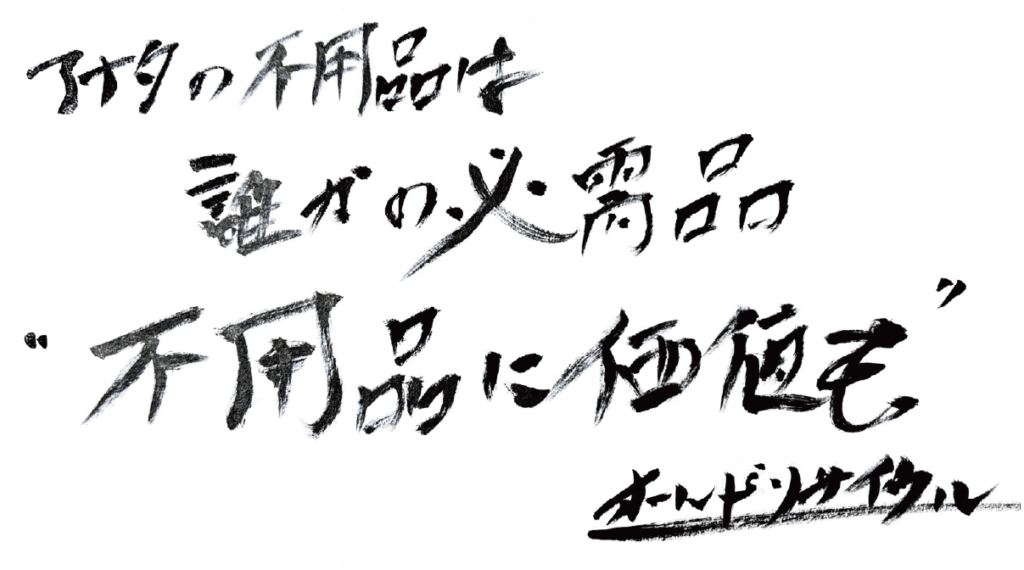 アナタの不用品は
誰かの必需品
“不用品に価値も”
オールドリサイクル